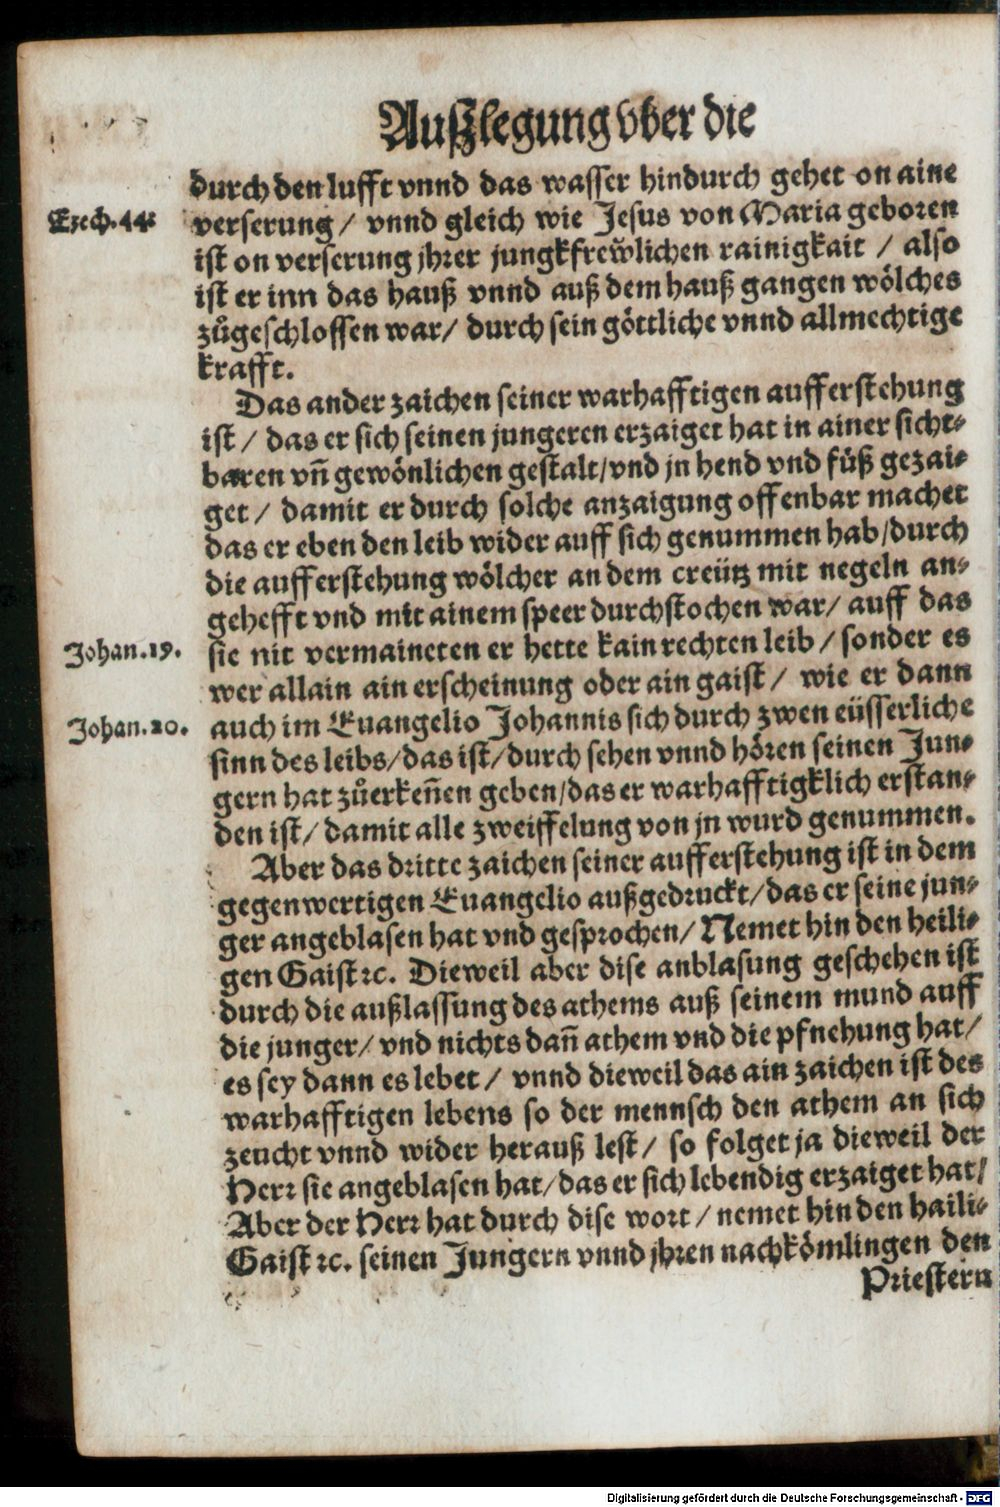 Außlegung vber die
durch den lufft vnnd das wasser hindurch gehet on aine
Ezech.44.
verserung / vnnd gleich wie Jesus von Maria geboren
ist on verserung jhrer jungkfrewlichen rainigkait / also
ist er inn das hauß vnnd auß dem hauß gangen wölches
zůgeschlossen war / durch sein göttliche vnnd allmechtige
krafft.
Das ander zaichen seiner warhafftigen aufferstehung
ist / das er sich seinen jungeren erzaiget hat in ainer sicht-
baren vñ gewönlichen gestalt / vnd jn hend vnd füß gezai-
get / damit er durch solche anzaigung offenbar machet
das er eben den leib wider auff sich genummen hab / durch
die aufferstehung wölcher an dem creütz mit negeln an-
gehefft vnd mit ainem speer durchstochen war / auff das
Johan.19.
sie nit vermaineten er hette kain rechten leib / sonder es
wer allain ain erscheinung oder ain gaist / wie er dann
Johan.20.
auch im Euangelio Johannis sich durch zwen eüsserliche
sinn des leibs / das ist / durch sehen vnnd hören seinen Jun-
gern hat zůerkeñen geben / das er warhafftigklich erstan-
den ist / damit alle zweiffelung von jn wurd genummen.
Aber das dritte zaichen seiner aufferstehung ist in dem
gegenwertigen Euangelio außgedruckt / das er seine jun-
ger angeblasen hat vnd gesprochen / Nemet hin den heili-
gen Gaist ꝛc. Dieweil aber dise anblasung geschehen ist
durch die außlassung des athems auß seinem mund auff
die junger / vnd nichts dañ athem vnd die pfnehung hat /
es sey dann es lebet / vnnd dieweil das ain zaichen ist des
warhafftigen lebens so der mennsch den athem an sich
zeucht vnnd wider herauß lest / so folget ja dieweil der
Herr sie angeblasen hat / das er sich lebendig erzaiget hat /
Aber der Herr hat durch dise wort / nemet hin den haili-
Gaist ꝛc. seinen Jungern vnnd jhren nachkömlingen den
Priestern
Digitalisierung gefördert durch die Deutsche Forschungsgemeinschaft - DFG